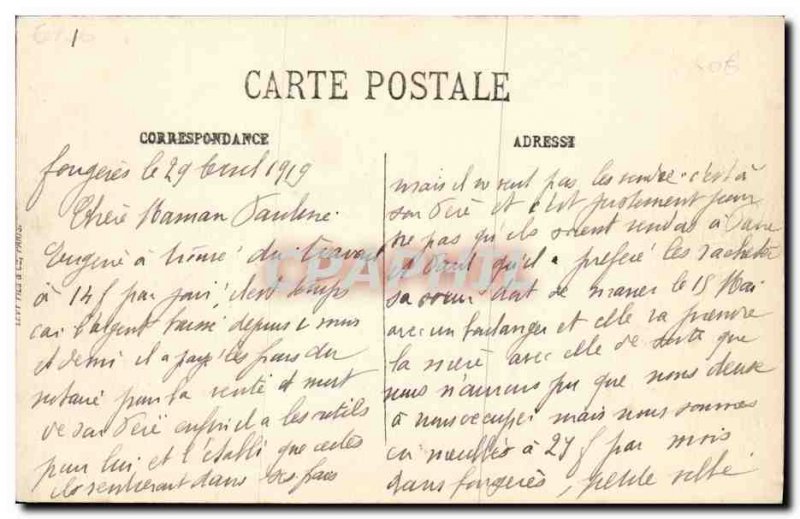 1
CARTE POSTALE
CORRESPONDANCE
ADRESSE
LEVY FILS & Cie, PARIS
CPAPHIL
fougères le 29 Avril 1919
Chère Maman Pauline
Eugène à trouvé du travail
à 14f par jour, c'est temps
car l'argent depuis 2 mois
et demi il a payé les frais du
notaire pour la vente et mort
de son Père enfin il a les outils
pour lui et l'établi que
ils rentreront dans les frais
mais il ne veut pas les vendre c'est à
son Père et c'est justement pour
ne pas qu'ils soient vendus à
et qu'il a préféré les racheter
sa soeur doit se marier le 15 Mai
avec un boulanger et elle va prendre
la mère avec elle de sorte que
nous n'aurons pu que nous deux
à nous occuper mais nous sommes
en meublés à 25f par mois
dans fougères, petite ville